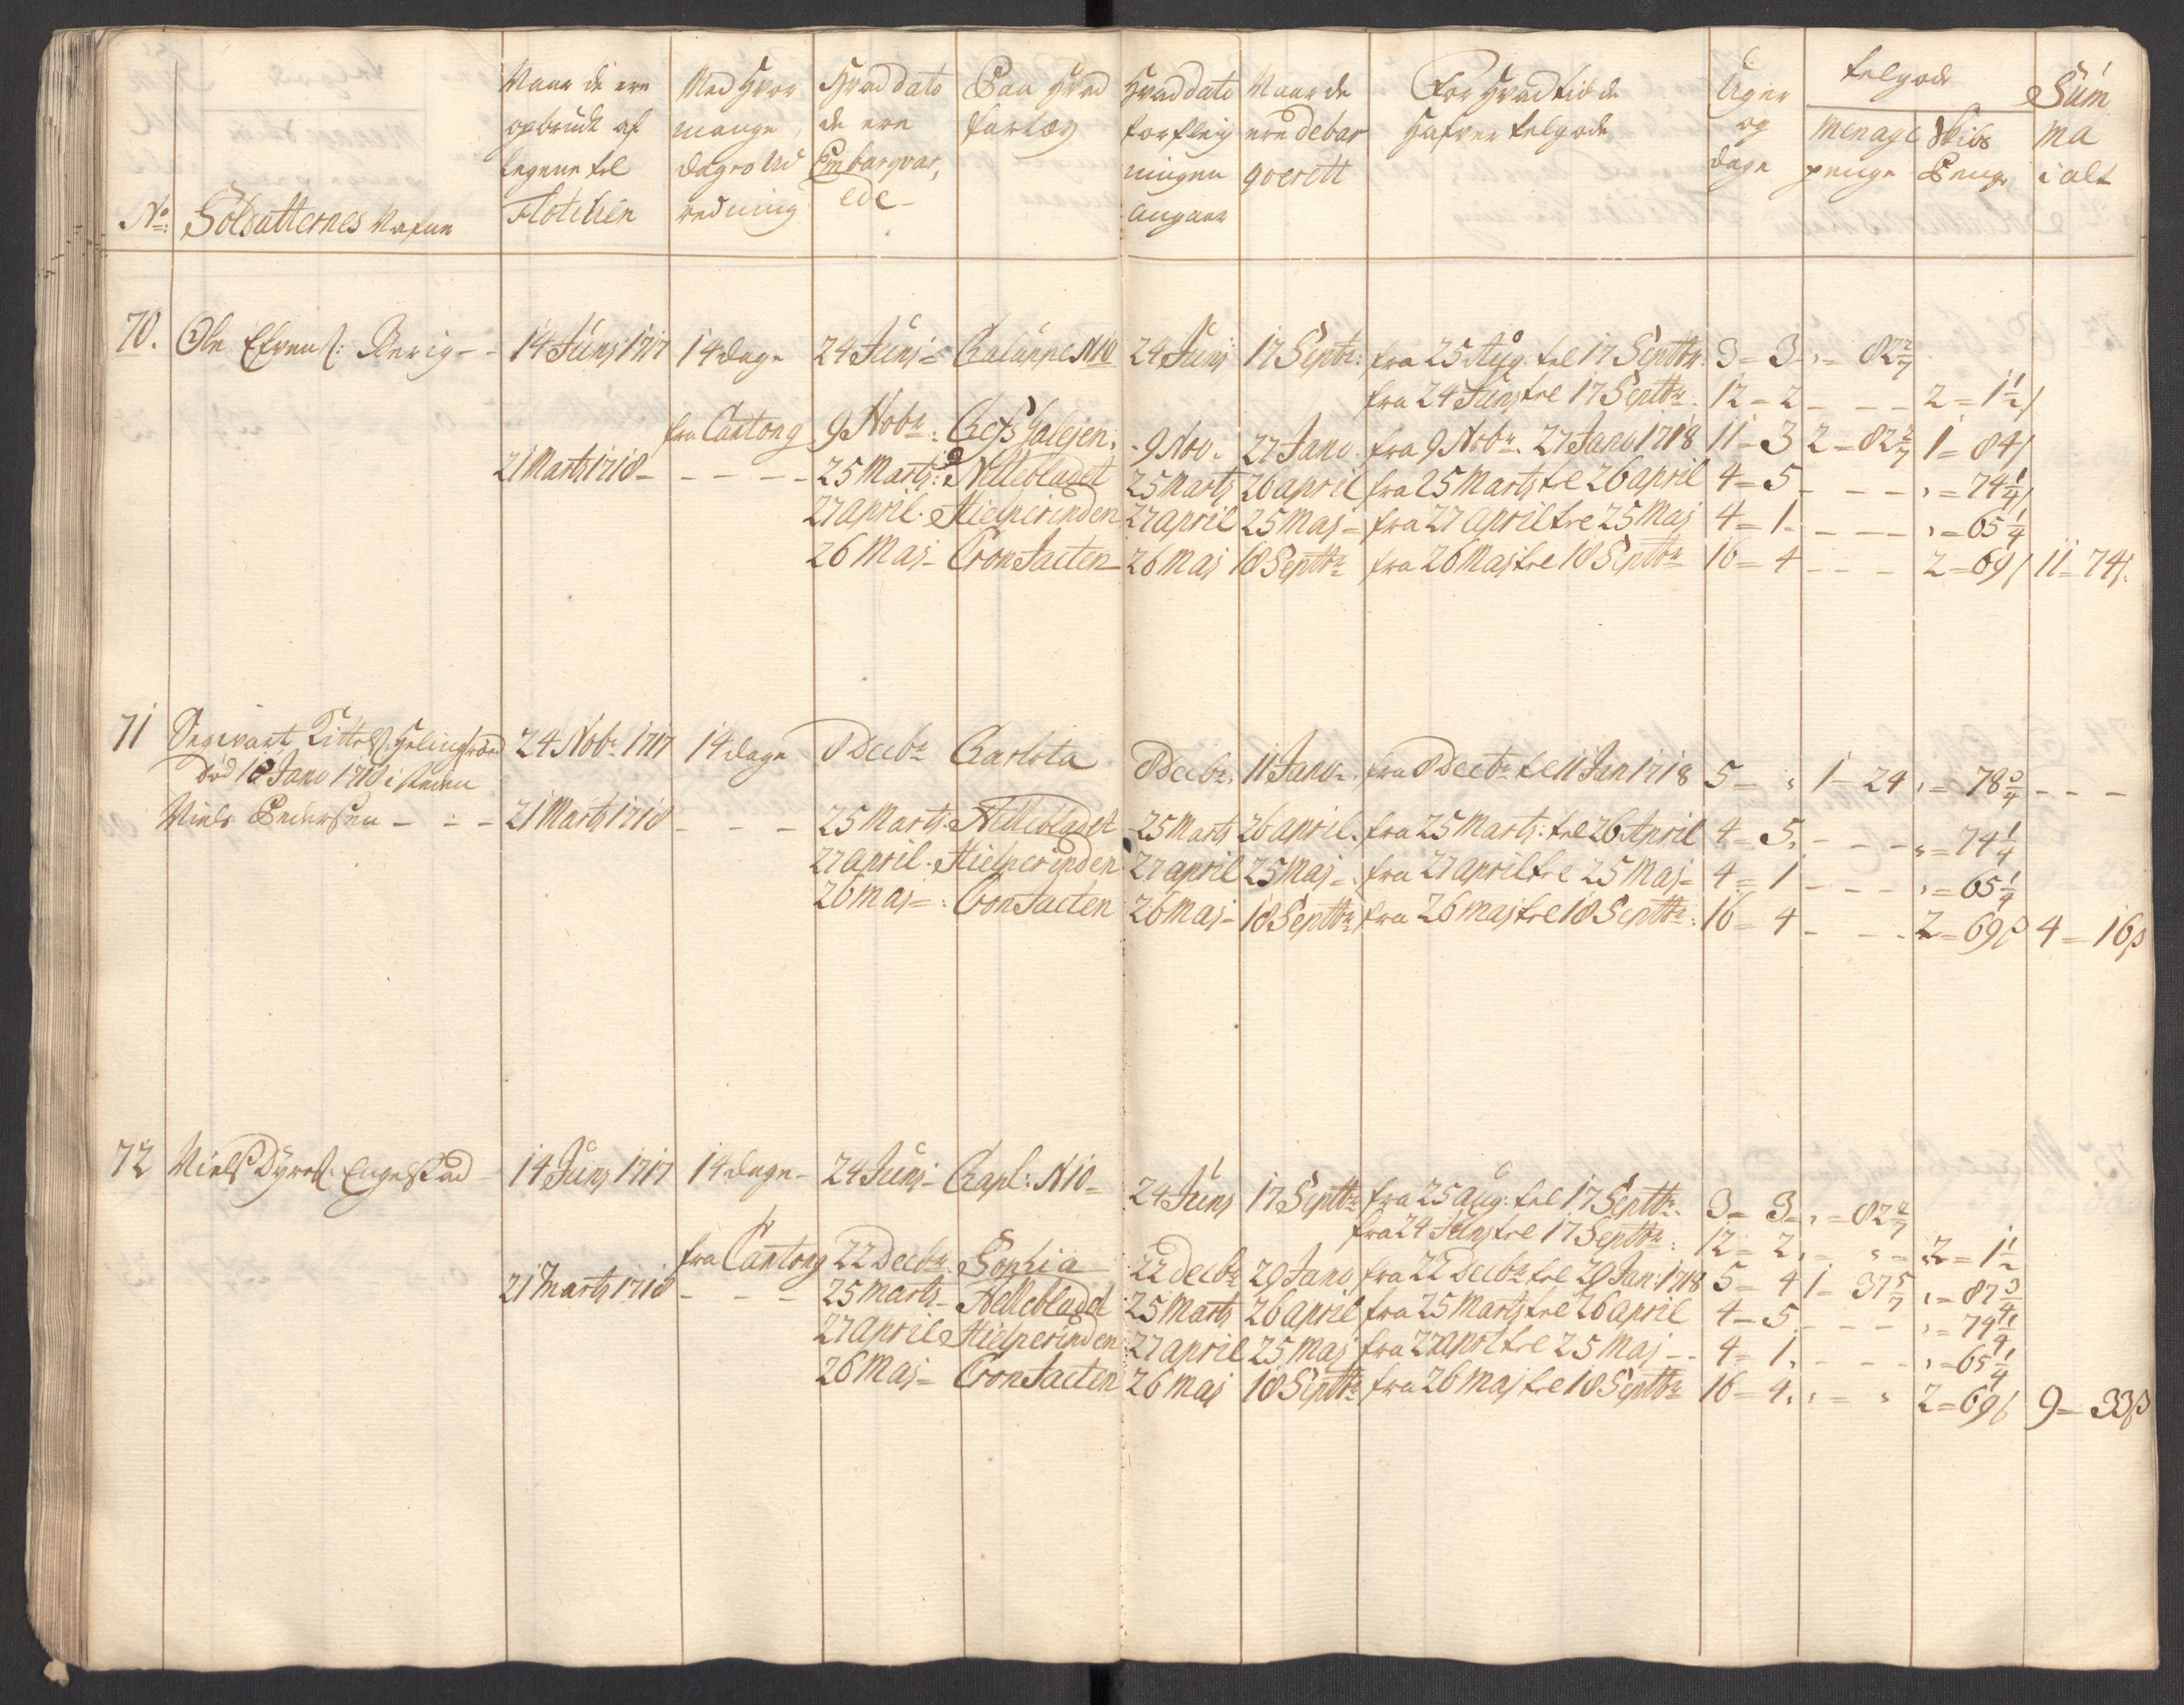 No: Soldatternes Nafne
Naar de ere opbrudt af legene til Flotillen
Med Hvor mange dages Udredning
Hvad dato de ere Embarqvarede
Paa Hvad fartøy
Hvad dato forpleigningen angaar
Naar de ere debarqverett
For Hvad tid de Hafver tilgode
Uger og dage
tilgode
Menage penge
Skibs Penge
Summa i alt
70. Ole 14 Junj 1717 14 dage 24 Junj = N 10 24 Junj 17 Septbr: fra 25 Aug. til 17 Septbr: 3 = 3 - , = 82 2/7
fra 24 Junj til 17 Septbr: 12 = 2 - - - 2 = 1 1/2
fra Cantong 9 Nobr: Galejen: 9 Nov. 27 Jano fra 9 Nobr. 27 Jano 1718 11 = 3 2 = 82 2/7 1 = 84
21 Martj 1718 - - - - - 25 Martj: Nellebladet 25 Martj 26 april fra 25 Martj til 26 april 4 = 5 - - - , = 74 1/4
27 april. Hielperinden 27 april 25 Maj = fra 27 april til 25 Maj 4 = 1 - - - , = 65 1/4
26 Maj - Cron Jacten 26 Maj 18 Septbr fra 26 Maj til 18 Septbr 16 = 4 - - - 2 = 69 11 = 74
71 24 Nobr. 1717 14 dage 8 Decbr Carlota 8 Decbr. 11 Jano. fra 8 Decbr til 11 Jan 1718 5 = , 1 = 24 , = 78 3/4 - - -
død 18 Jano 1718 i steden
Niels Pedersen - - - 21 Martj 1718 - - - 25 Martj: Nellebladet 25 Martj 26 april. fra 25 Martj: til 26 April 4 = 5. - - - , = 74 1/4
27 april. Hielperinden 27 april 25 Maj = fra 27 april til 25 Maj = 4 = 1 - - - , = 65 1/4
26 maj = : Cron Jacten 26 maj = 18 Septbr fra 26 maj til 18 Septbr: 16 = 4 - - - 2 = 69 ß 4 = 16 ß
72 Niels Engestad 14 Junj 1717 14 dage - 24 Junj - N 10 = 24 Junj 17 Septbr fra 25 aug: til 17 Septbr. 3 = 3 = , = 82 2/7
fra 24 Junj til 17 Septbr: 12 = 2. = , = 2 = 1 1/2
fra Cantong 22 Decbr. Sophia 22 Decbr 29 Jano fra 22 Decbr til 29 Jan: 1718 5 = 4 1 = 37 5/7 , = 87 3/4
21 Martj 1718 - - - 25 Martj - Nellebladet 25 Martj 26 april fra 25 Martj til 26 april 4 = 5 - - - , = 74 1/4
27 april Hielperinden 27 april 25 Maj fra 27 april til 25 Maj - - 4 = 1. - - - , = 65 1/4
26 Maj = Cron Jacten 26 Maj 18 Septbr fra 26 Maj til 18 Septbr 16 = 4. , = , 2 = 69 9 = 33 ß